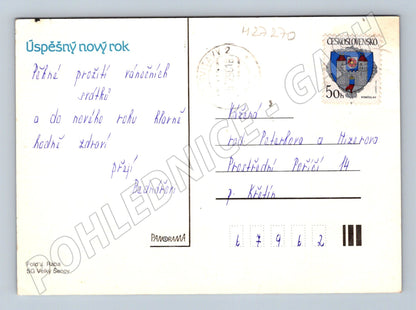 427270
Úspěšný nový rok
ČESKOSLOVENSKO
50h
Pěkné prožití vánočních
svátků
a do nového roku hlavně
hodně zdraví
přejí
Bednářovi
Vážená
rod Peterkova a Mizerova
Prostřední Poříčí 14
p. Křetín
PANORAMA
6 7 9 6 2
SG Velký Šenov
POHLEDNICE - GASH